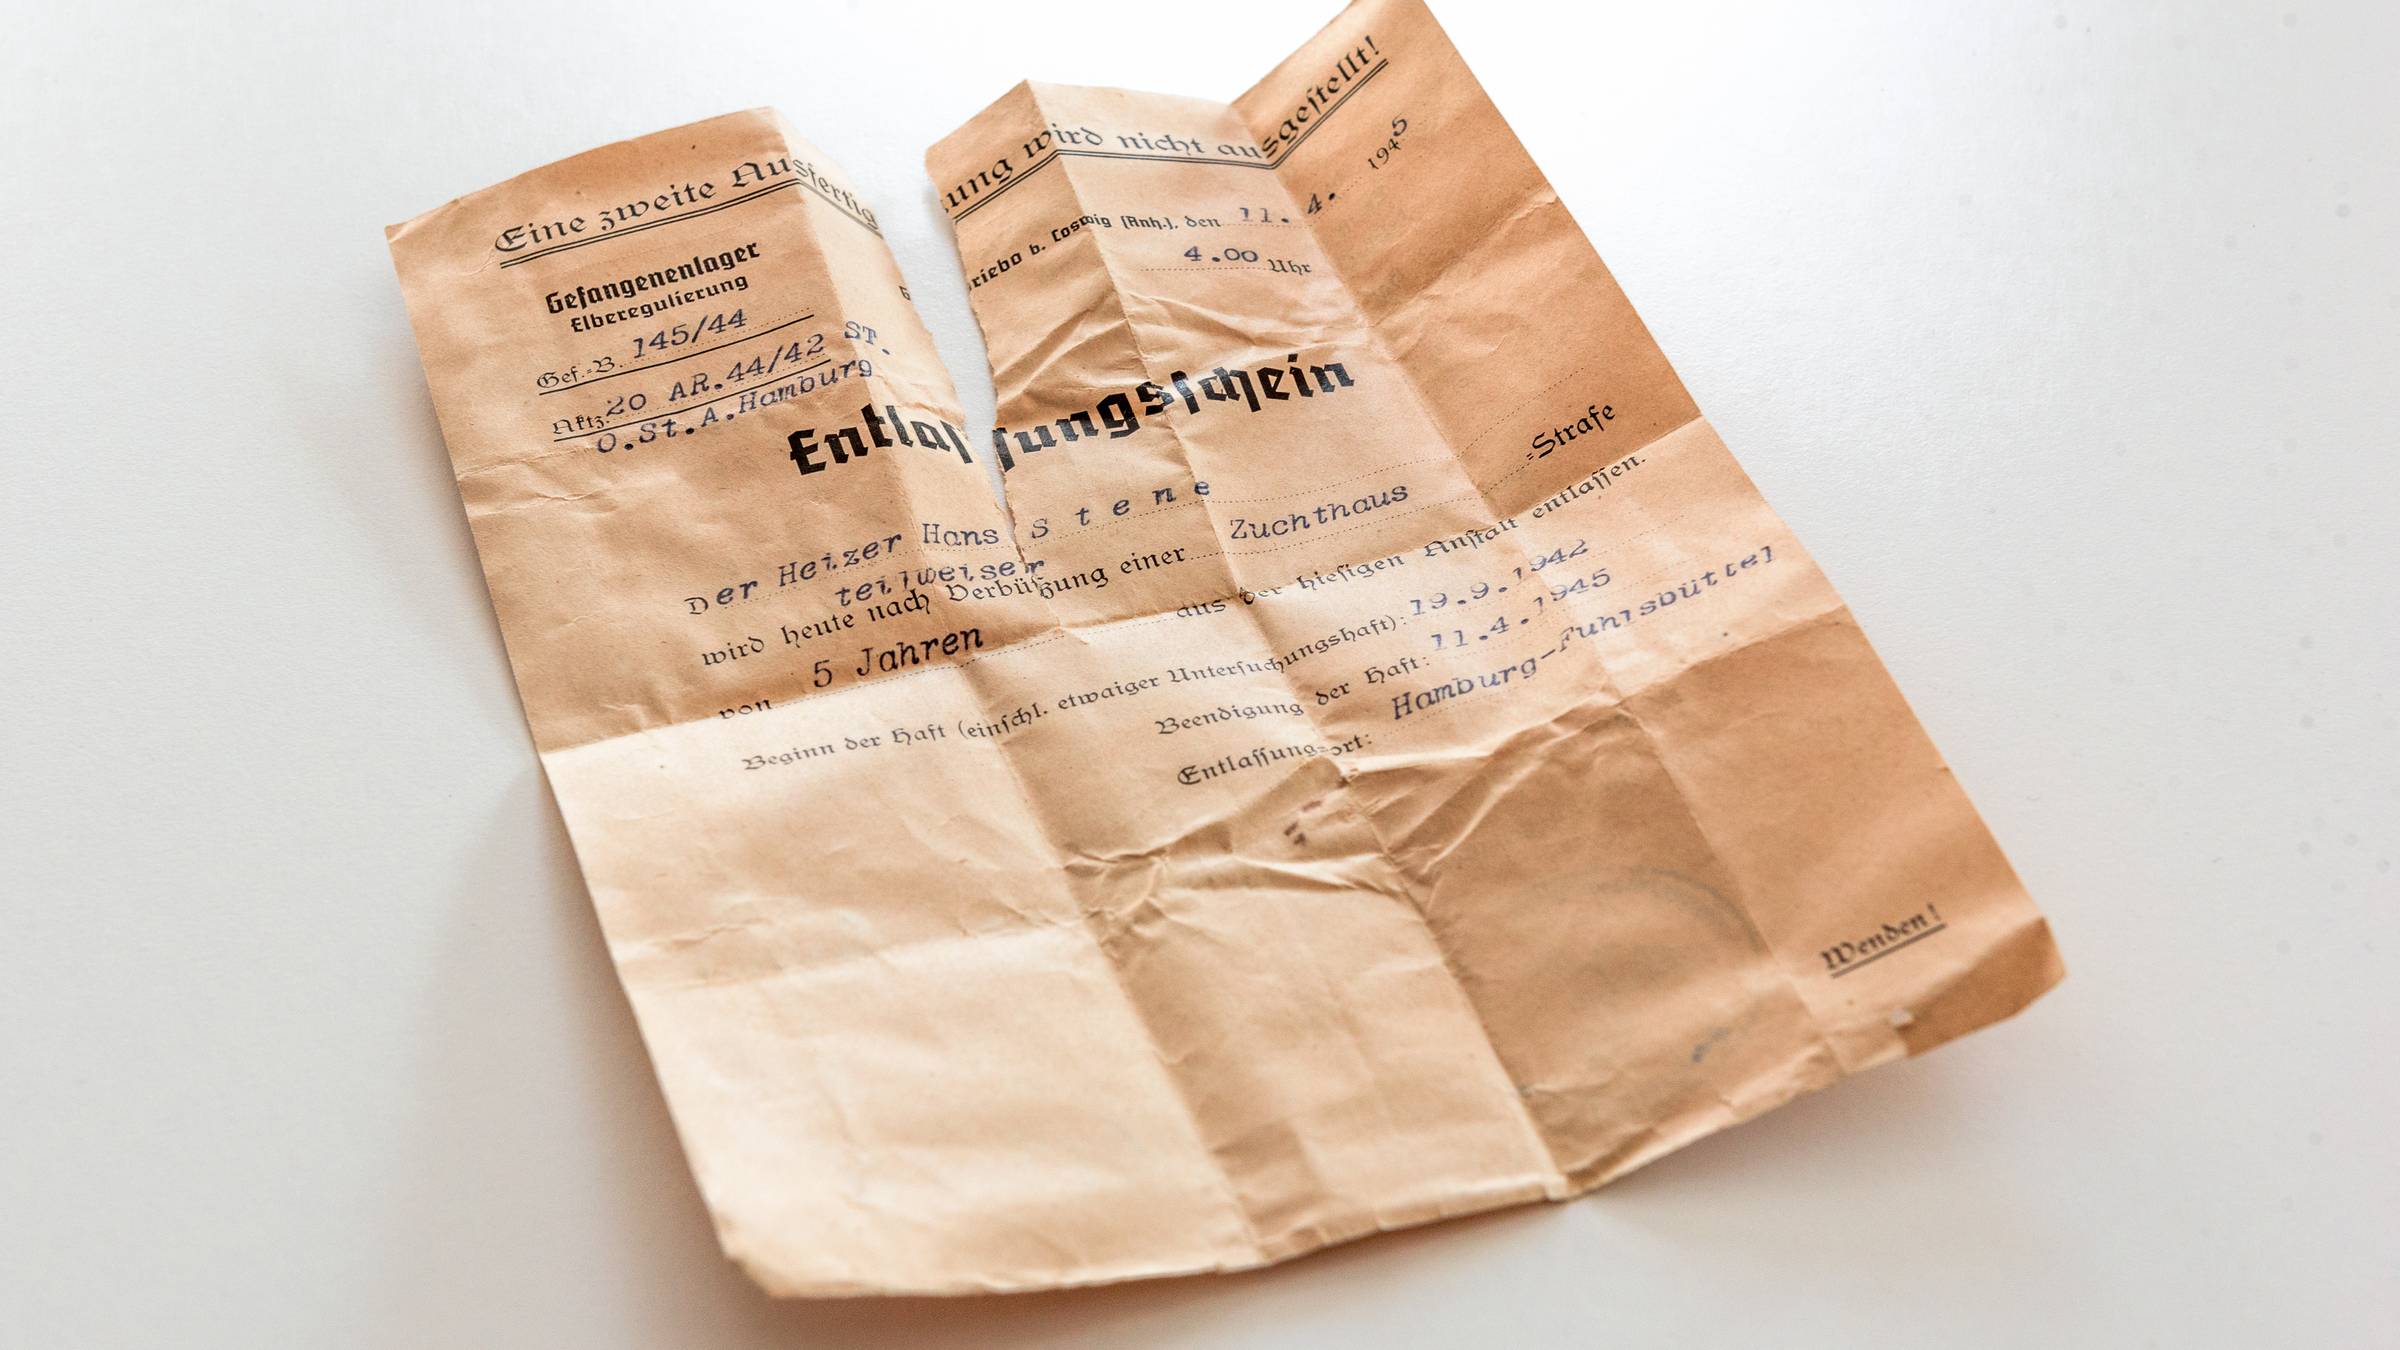 Eine zweite Ausfertigung wird nicht ausgestellt!
Gefangenenlager
Elberegulierung
G riebo b. Coswig (Anh.), den 11. 4. 1945
4.00 Uhr
Gef.-B. 145/44
Aktz. 20 AR.44/42 ST.
O.St.A.Hamburg
Entlassungsschein
Der Heizer Hans S t e n e
teilweiser
wird heute nach Verbüßung einer Zuchthaus -Strafe
von 5 Jahren aus der hiesigen Anstalt entlassen.
Beginn der Haft (einschl. etwaiger Untersuchungshaft): 19.9.1942
Beendigung der Haft: 11.4.1945
Entlassungsort: Hamburg-Fuhlsbüttel
Wenden!